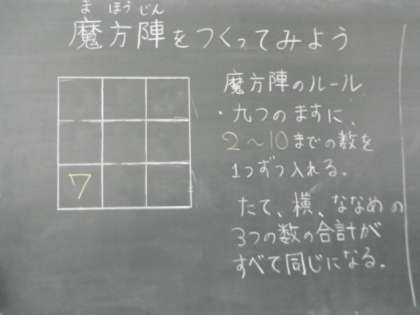 ま ほう じん
魔方陣をつくってみよう
魔方陣のルール
・九つのますに、
2〜10までの数を
1つずつ入れる。
たて、横、ななめの
3つの数の合計が
すべて同じになる。
7